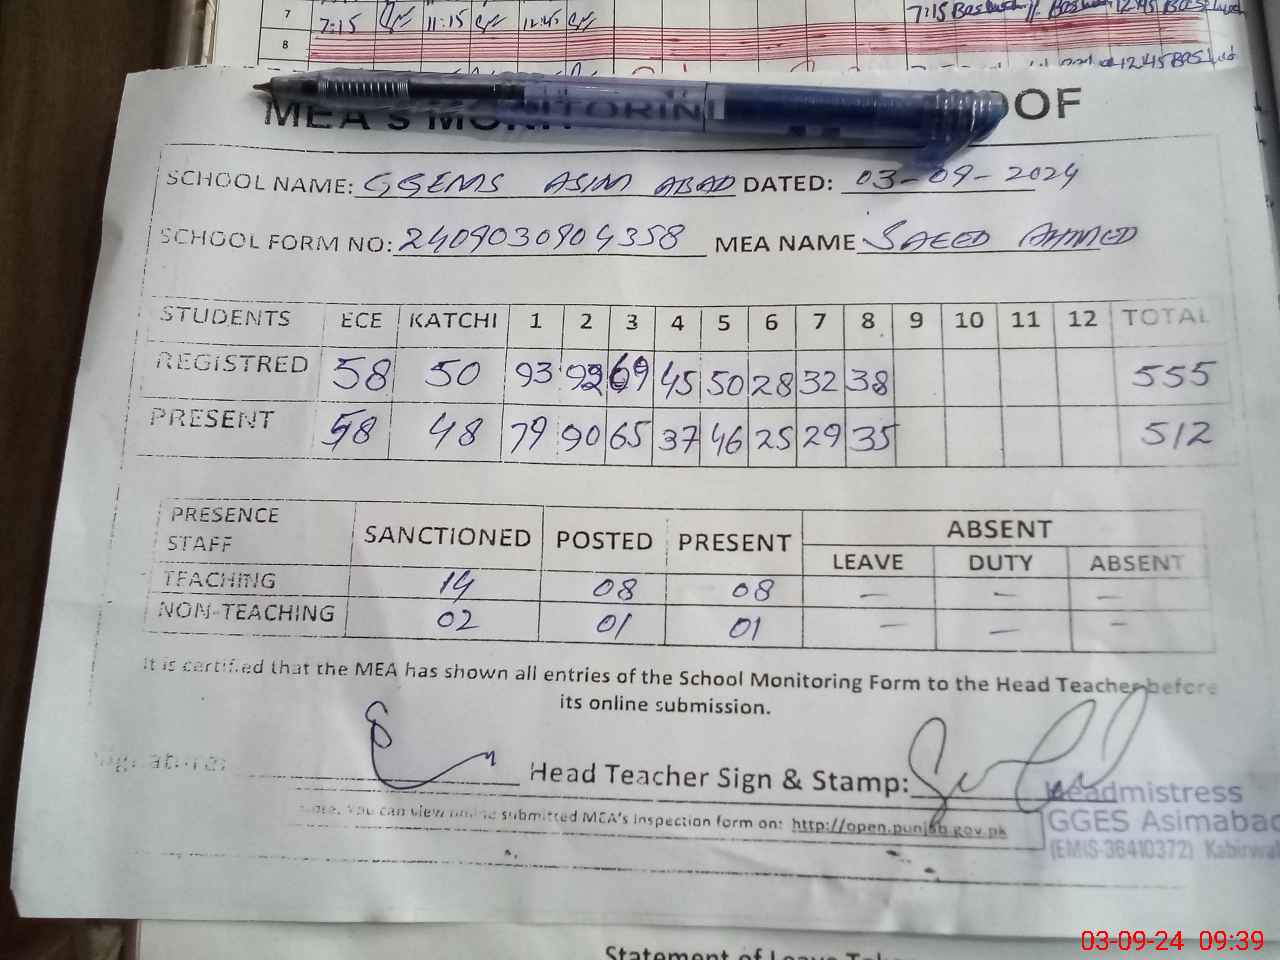 7 7:15 11:15 12:45 7:15
8
12:45
MEA's MONITORIN OOF
SCHOOL NAME: GGEMS ASIM ABAD DATED: 03-09-2024
SCHOOL FORM NO: 2409030904358 MEA NAME SAEED AHMED
STUDENTS ECE KATCHI 1 2 3 4 5 6 7 8 9 10 11 12 TOTAL
REGISTRED 58 50 93 92 69 45 50 28 32 38 555
PRESENT 58 48 79 90 65 37 46 25 29 35 512
PRESENCE STAFF SANCTIONED POSTED PRESENT ABSENT
LEAVE DUTY ABSENT
TEACHING 14 08 08 — — —
NON-TEACHING 02 01 01 — — —
It is certified that the MEA has shown all entries of the School Monitoring Form to the Head Teacher before
its online submission.
Signature: Head Teacher Sign & Stamp:
Note. You can view online submitted MEA's inspection form on: http://open.punjab.gov.pk
Headmistress
GGES Asimabad
(EMIS-36410372) Kabirwal
03-09-24 09:39
Statement of Leave Take